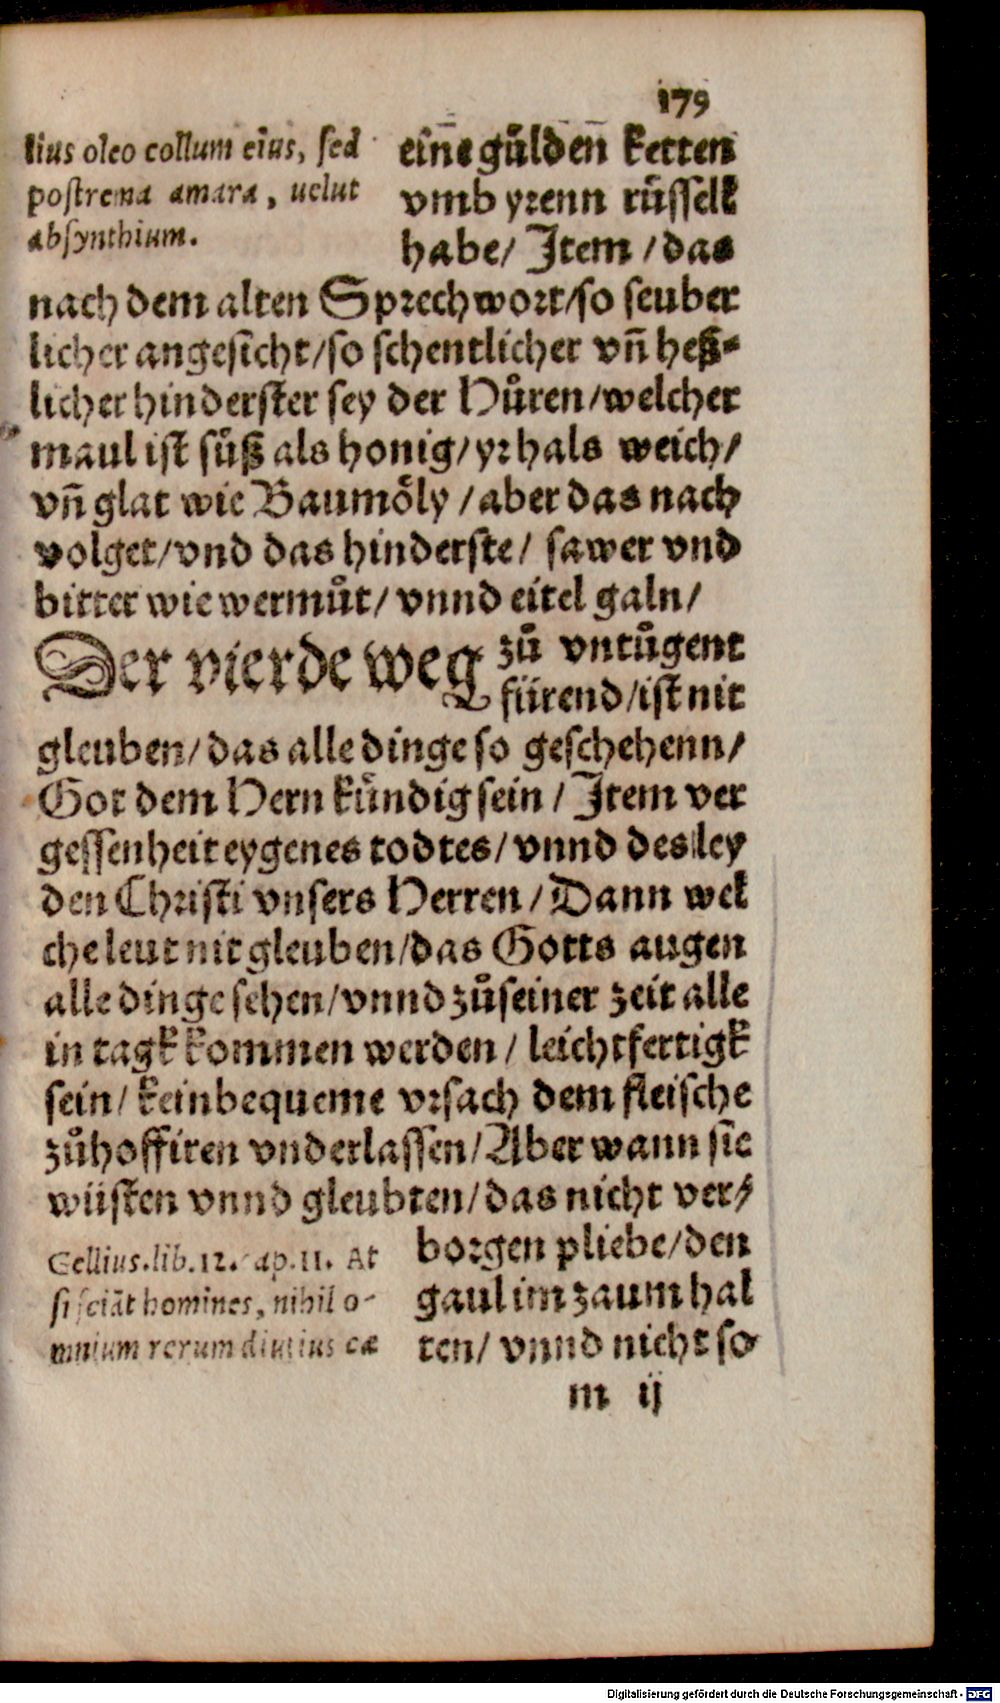 179
lius oleo collum eius, sed
postrema amara, uelut
absynthium.
ein̄e gůlden̄ ketten
vmb yrenn růsselk
habe/ Item /das
nach dem alten Sprechwort/so seuber
licher angesicht/so schentlicher vn̄ heß-
licher hinderster sey der Hůren/welcher
maul ist sůß als honig/yr hals weich/
vn̄ glat wie Baumoͤly /aber das nach
volget/vnd das hinderste/ sawer vnd
bitter wie wermůt/ vnnd eitel galn/
Der vierde weg zů vntůgent
fürend/ist nit
gleuben/das alle dinge so geschehenn/
Got dem Hern kůndig sein / Item ver
gessenheit eygenes todtes/ vnnd des ley
den Christi vnsers Herren / Dann wel
che leut nit gleuben/das Gotts augen
alle dinge sehen/vnnd zůseiner zeit alle
in tagk kommen werden / leichtfertigk
sein/ kein bequeme vrsach dem fleische
zůhoffiren vnderlassen/Aber wann sie
wüsten vnnd gleubten/das nicht ver/
borgen pliebe/den
gaul im zaum hal
ten/ vnnd nicht so
Gellius.lib.12. ap.11. At
si sciāt homines, nihil o-
mnium rerum diutius cæ
m ij
Digitalisierung gefördert durch die Deutsche Forschungsgemeinschaft - DFG